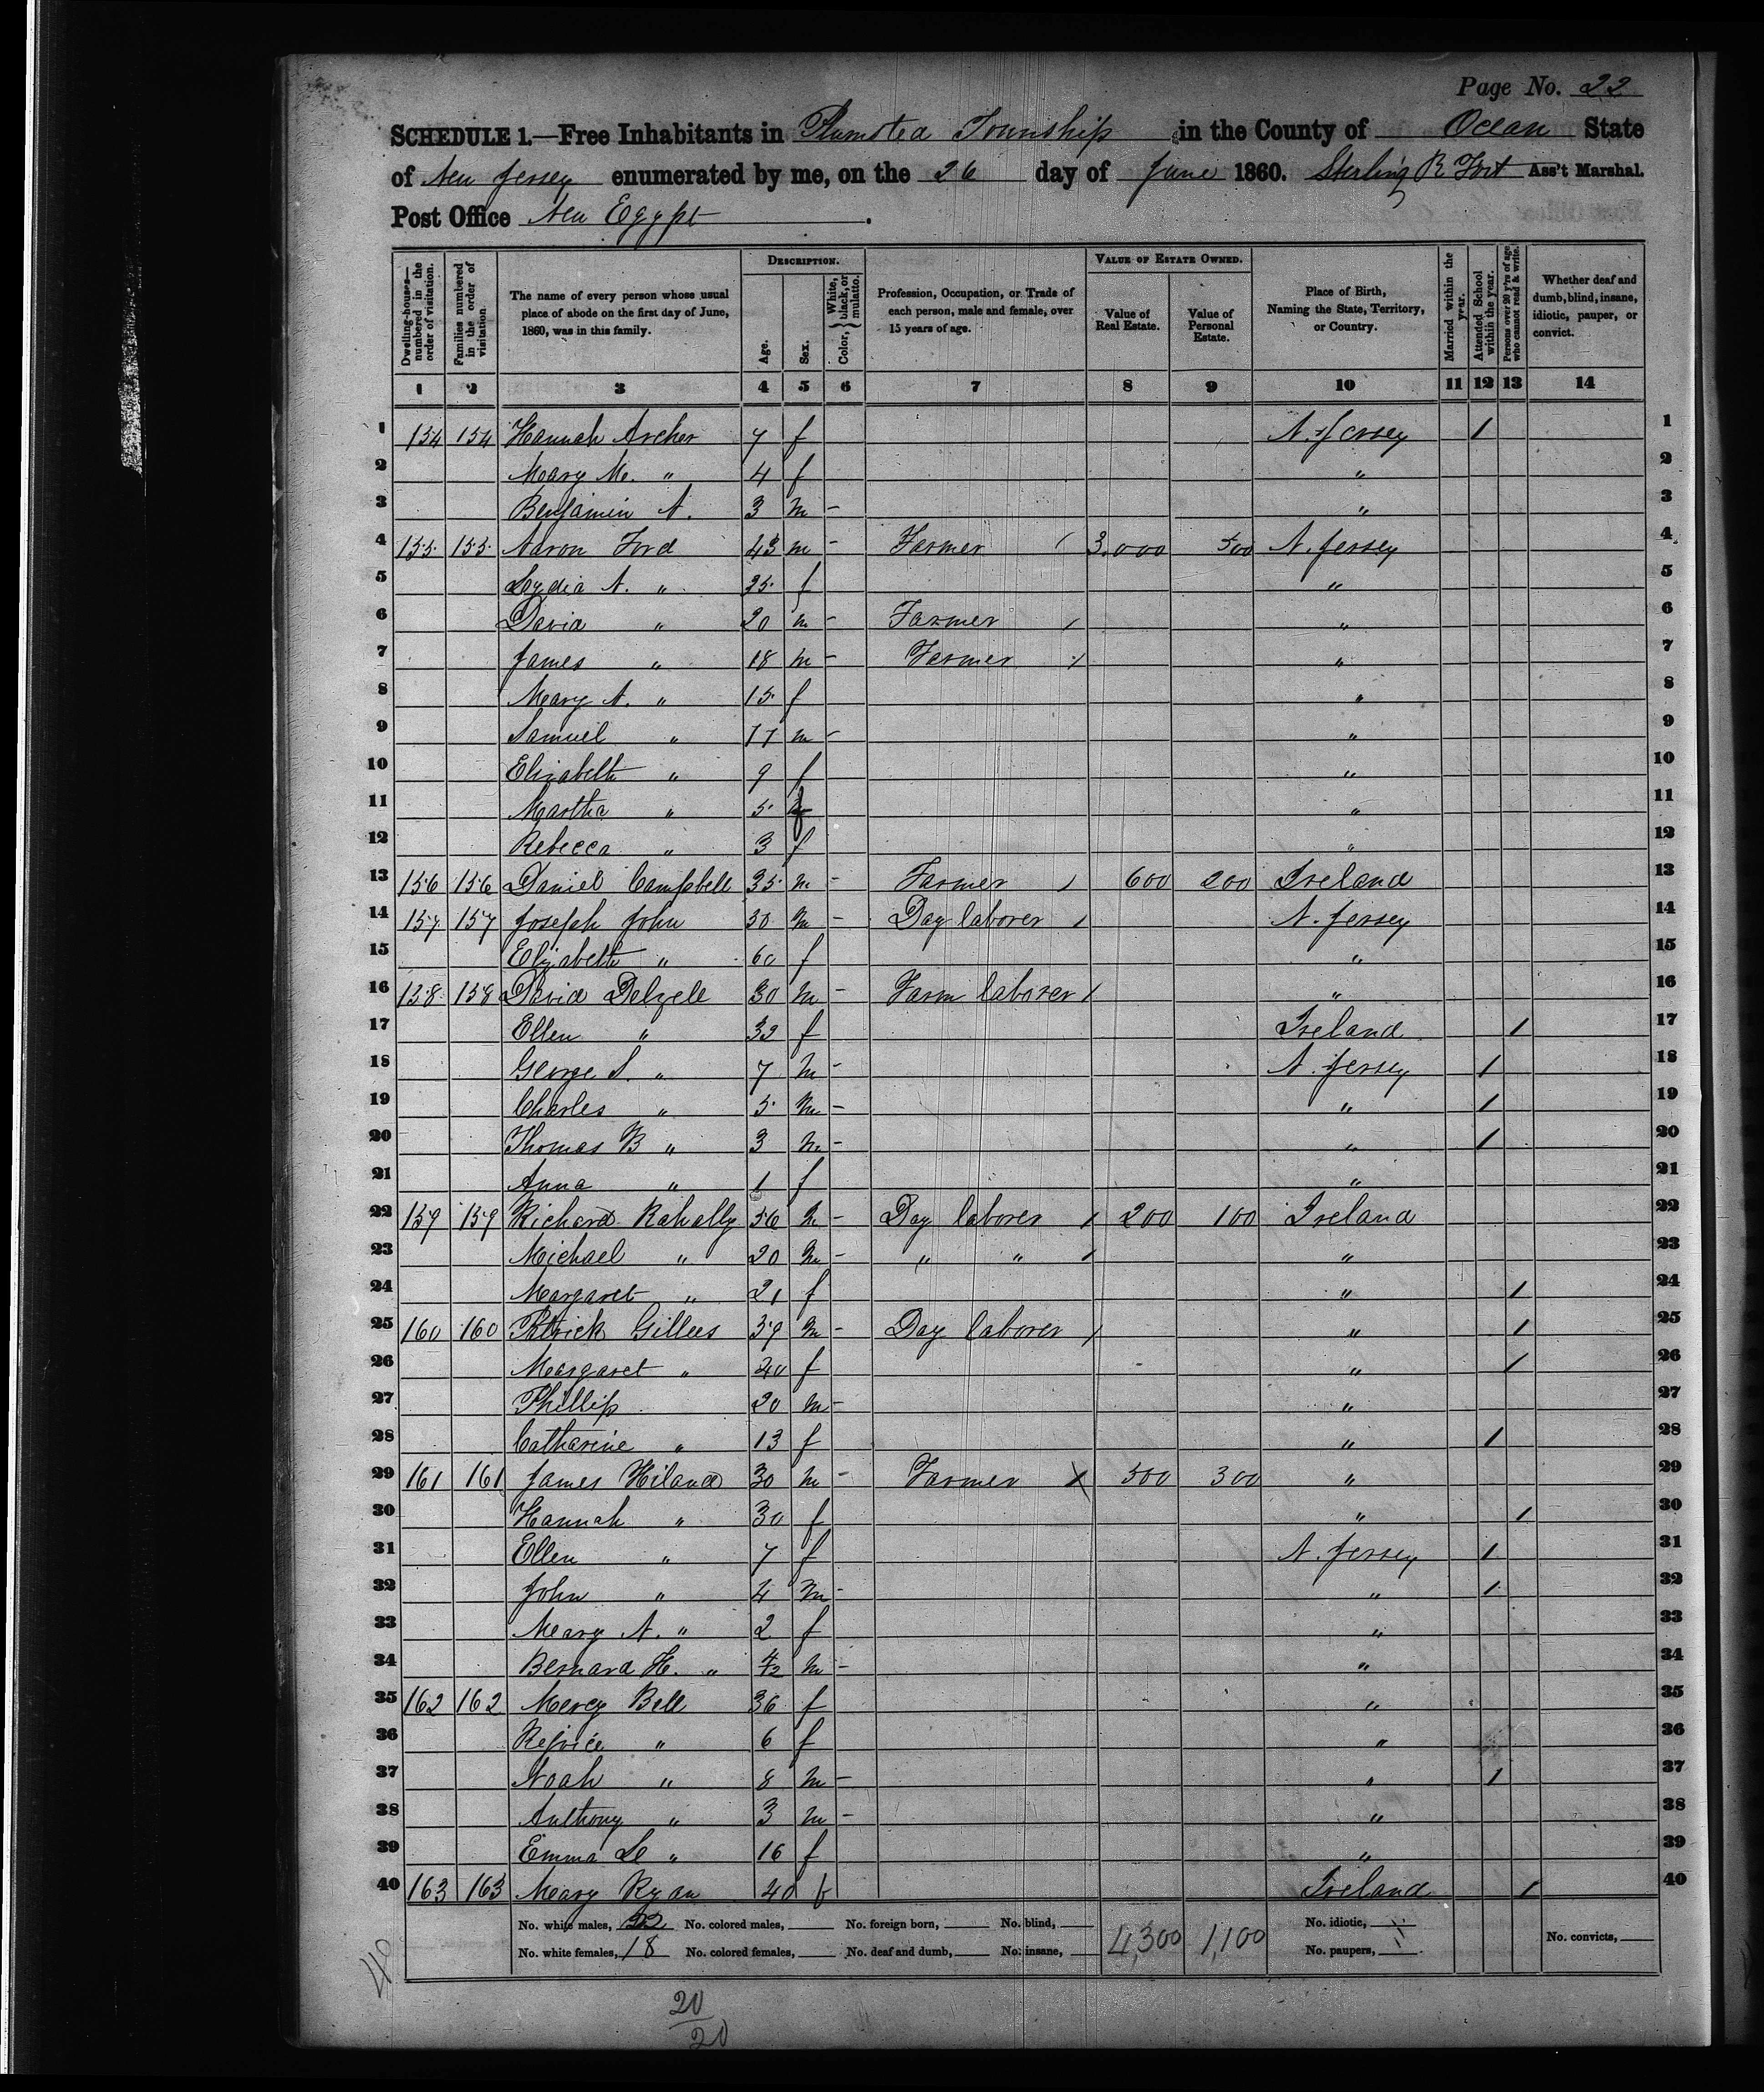 Page No. 22
SCHEDULE 1.—Free Inhabitants in Plumsted Township in the County of Ocean State
of New Jersey enumerated by me, on the 26 day of June 1860. Sterling R Fort Ass't Marshal.
Post Office New Egypt.
Dwelling-houses—numbered in the order of visitation. Families numbered in the order of visitation. The name of every person whose usual place of abode on the first day of June, 1860, was in this family. DESCRIPTION. Age. Sex. Color, White, black, or mulatto. Profession, Occupation, or Trade of each person, male and female, over 15 years of age. VALUE OF ESTATE OWNED. Value of Real Estate. Value of Personal Estate. Place of Birth, Naming the State, Territory, or Country. Married within the year. Attended School within the year. Persons over 20 y'rs of age who cannot read & write. Whether deaf and dumb, blind, insane, idiotic, pauper, or convict.
1 2 3 4 5 6 7 8 9 10 11 12 13 14
1 154 154 Hannah Archer 7 f N. Jersey / 1
2 Mary M. " 4 f " 2
3 Benjamin A. 3 m - " 3
4 155 155 Aaron Ford 43 m - Farmer / 3,000 500 N. Jersey 4
5 Lydia A. " 25 f " 5
6 David " 20 m - Farmer / " 6
7 James " 18 m - Farmer / " 7
8 Mary A. " 15 f " 8
9 Samuel " 17 m - " 9
10 Elizabeth " 9 f " 10
11 Martha " 5 f " 11
12 Rebecca " 3 f " 12
13 156 156 Daniel Campbell 35 m - Farmer / 600 200 Ireland 13
14 157 157 Joseph John 30 m - Day laborer / N. Jersey 14
15 Elizabeth " 60 f " 15
16 158 158 David Delzell 30 m - Farm laborer / " 16
17 Ellen " 32 f Ireland / 17
18 George S. " 7 m - N. Jersey / 18
19 Charles " 5 m - " / 19
20 Thomas B " 3 m - " / 20
21 Anna " 1 f " 21
22 159 159 Richard Rahally 56 m - Day laborer / 200 100 Ireland 22
23 Michael " 20 m - " " / " 23
24 Margaret " 21 f " / 24
25 160 160 Patrick Gillees 39 m - Day laborer / " / 25
26 Margaret " 40 f " / 26
27 Phillip 20 m - " 27
28 Catharine " 13 f " / 28
29 161 161 James Hiland 30 m - Farmer X 500 300 " 29
30 Hannah " 30 f " / 30
31 Ellen " 7 f N. Jersey / 31
32 John " 4 m - " / 32
33 Mary A. " 2 f " 33
34 Bernard H. " 4/12 m - " 34
35 162 162 Mercy Bell 36 f " 35
36 Rejoice " 6 f " 36
37 Noah " 8 m - " / 37
38 Anthony " 3 m - " 38
39 Emma " 16 f " 39
40 163 163 Mary Ryan 40 f Ireland / 40
No. white males, 22 No. colored males, No. foreign born, No. blind, 4,300 1,100 No. idiotic,
No. white females, 18 No. colored females, No. deaf and dumb, No. insane, No. paupers, No. convicts,
40
20
20